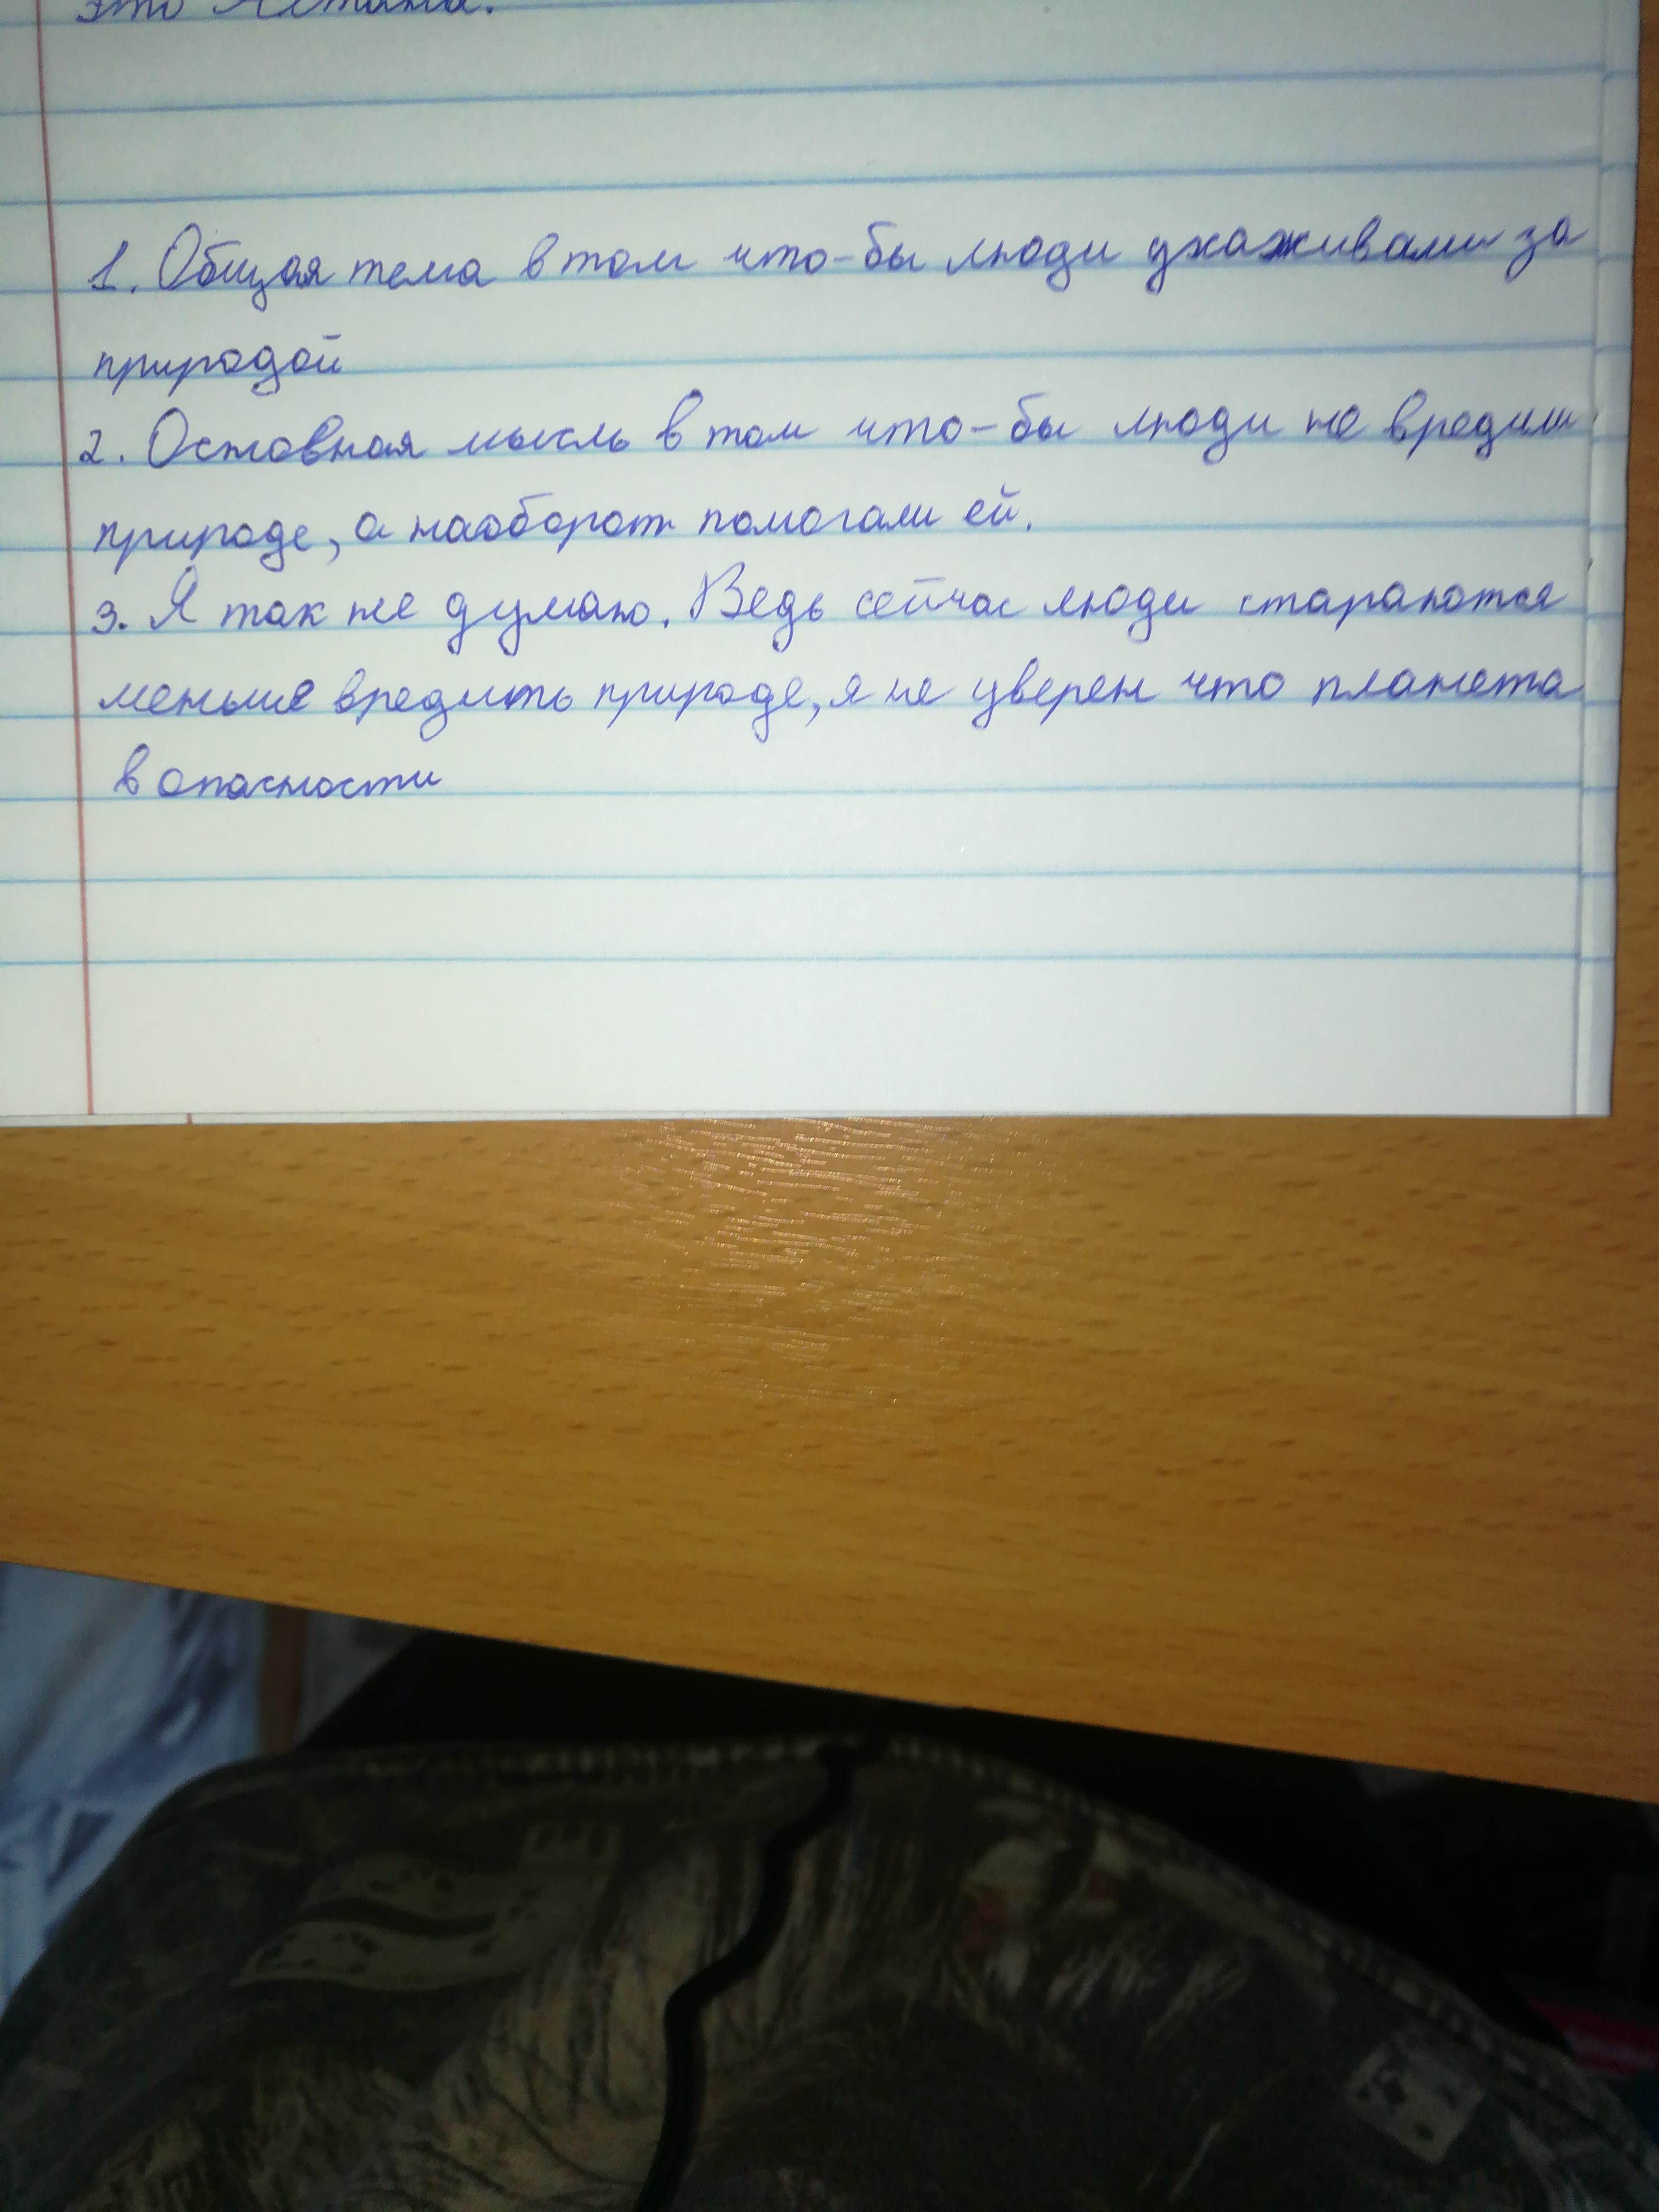 это Астана.
1. Общая тема в том что-бы люди ухаживали за
природой
2. Основная мысль в том что-бы люди не вредили
природе, а наоборот помогали ей.
3. Я так не думаю. Ведь сейчас люди стараются
меньше вредить природе, я не уверен что планета
в опасности